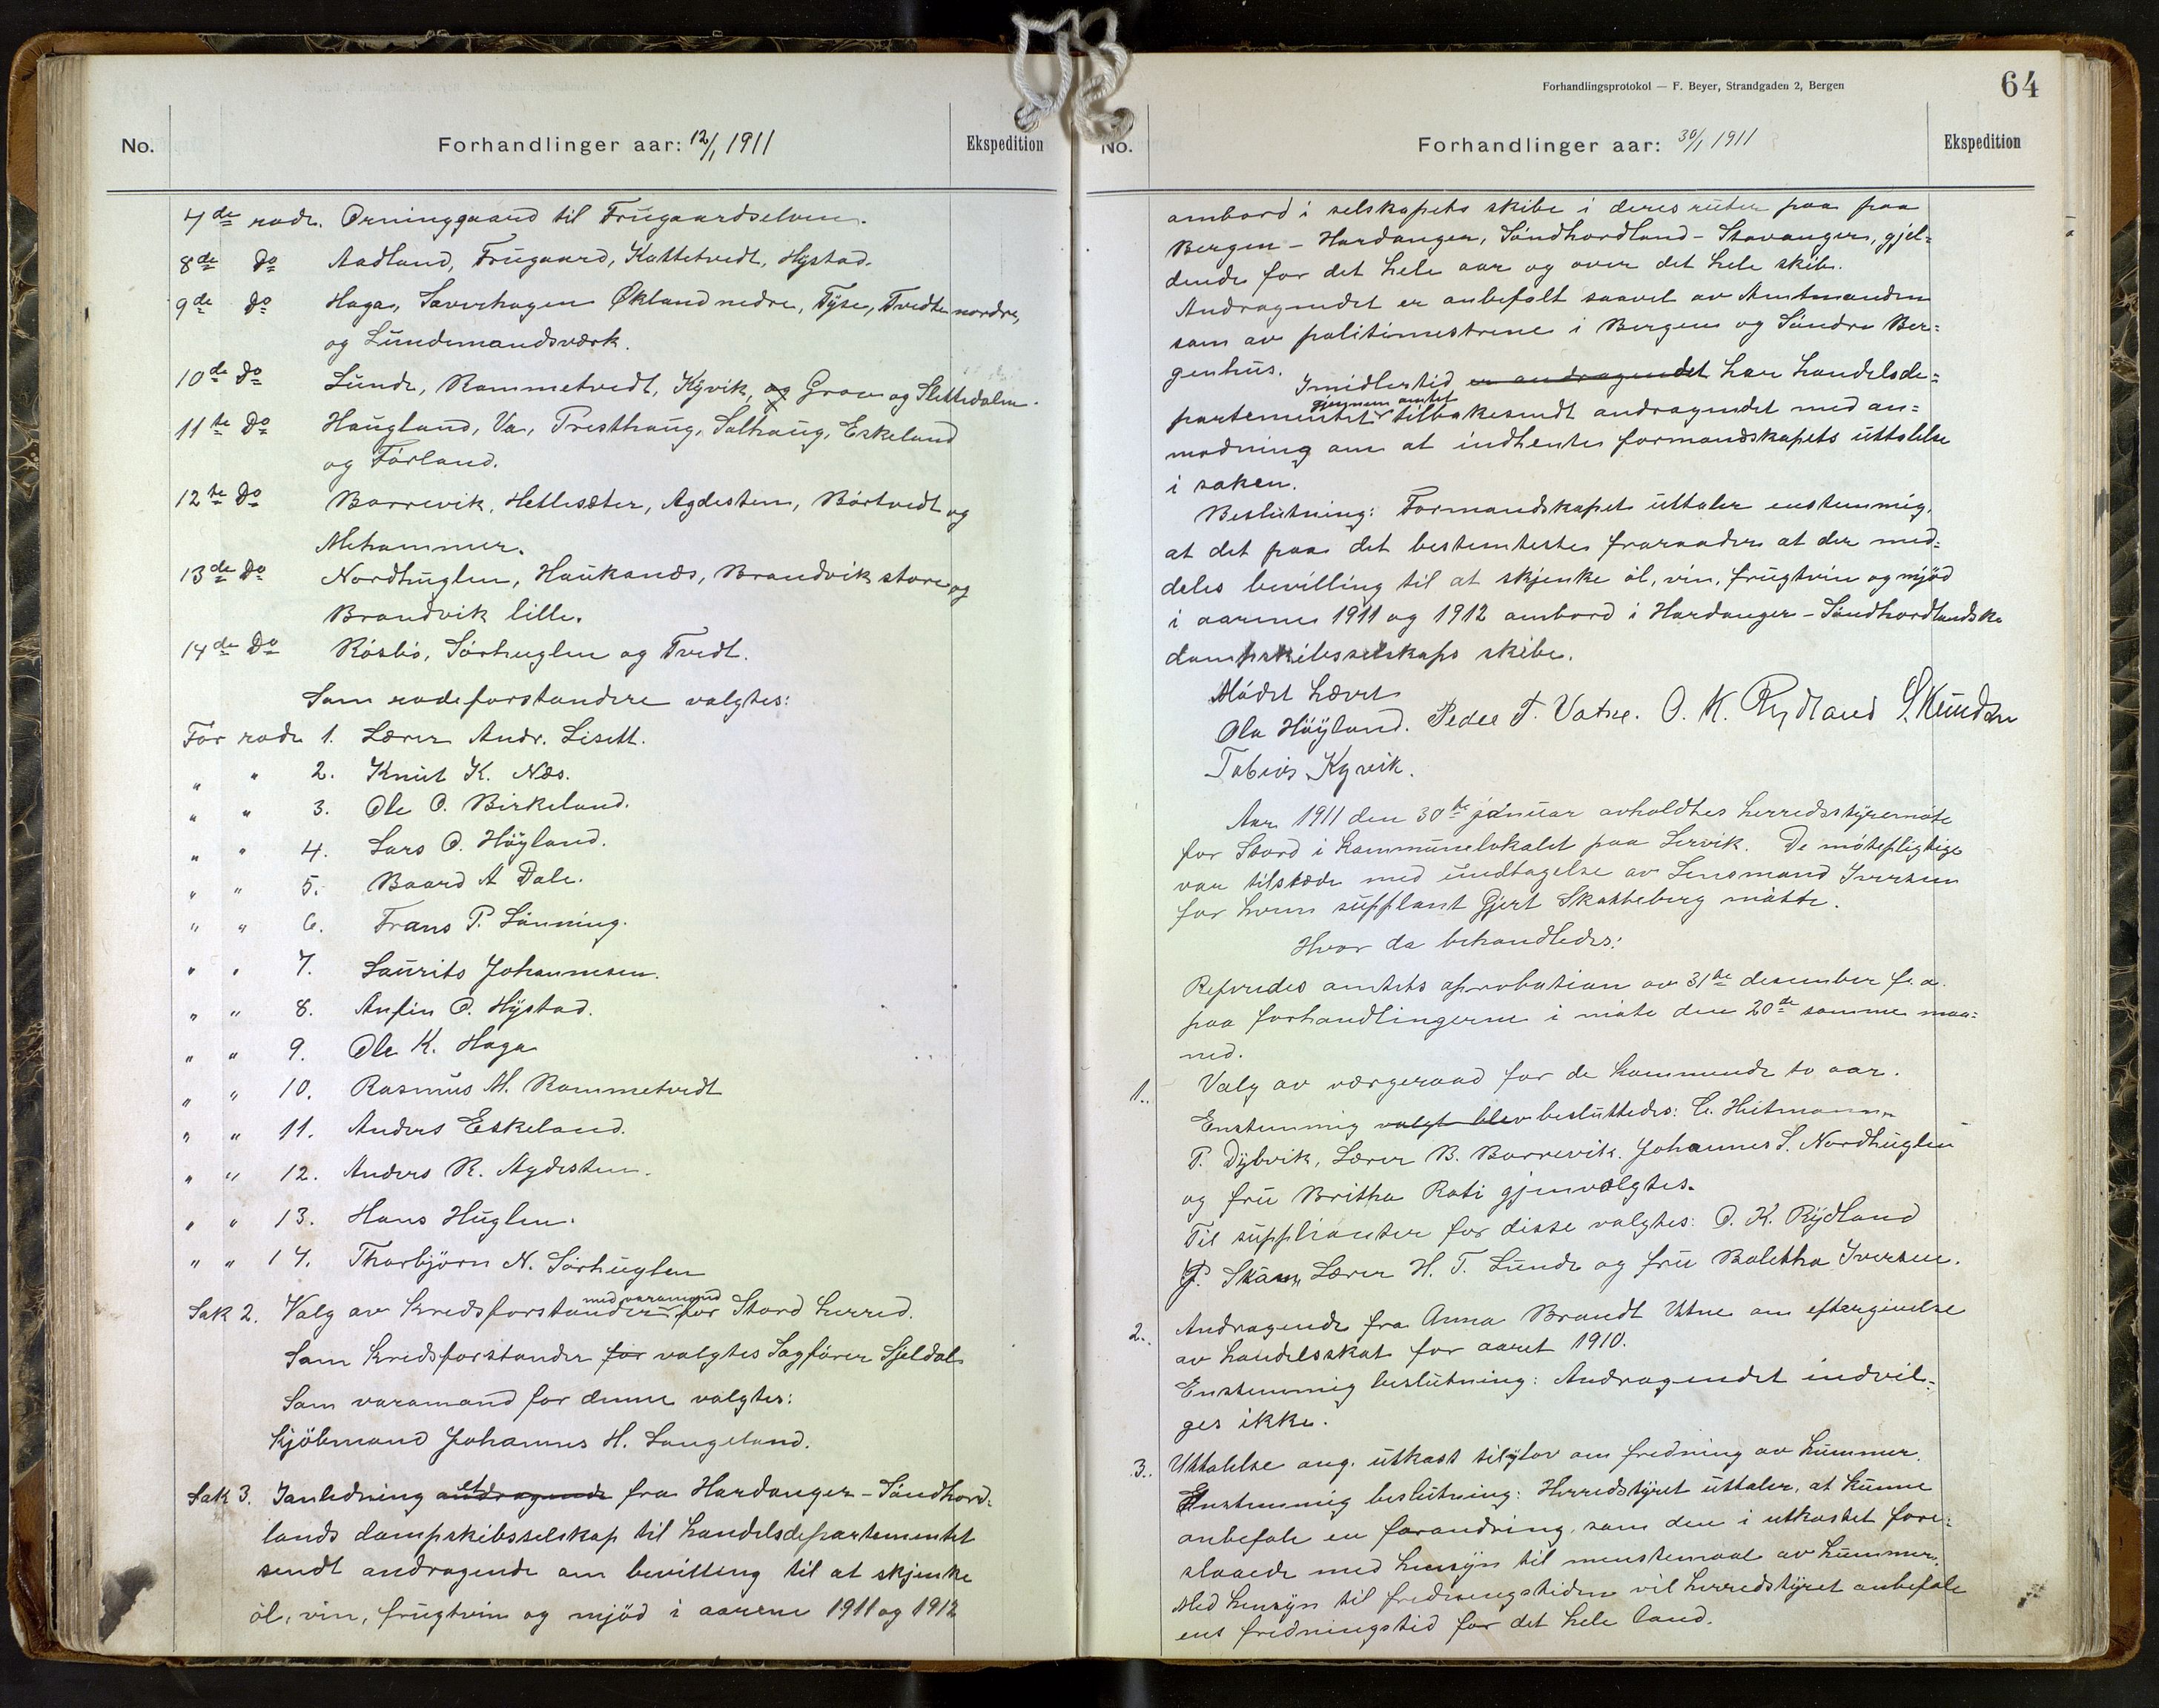 No.
Forhandlinger aar: 12/1 1911
Ekspedition
7de rode. Orninggaard til Frugaardselven.
8de Do Aadland, Frugaard, Kattetvedt, Hystad.
9de Do Haga, Sævarhagen Økland nedre, Tyse, Tvedte nordre,
og Lundemandsværk.
10de Do Lunde, Rommetvedt, Kyvik, og Grov og Slettedalen.
11te Do Haugland, Va, Presthaug, Solhaug, Eskeland
og Førland.
12te Do Borrevik, Hetlesæter, Agdestein, Børtvedt og
Mehammer.
13de Do Nordhuglen, Haukanæs, Brandvik store og
Brandvik lille.
14de Do Røsbö, Sörhuglen og Tvedt.
Som rodeforstandere valgtes:
For rode 1. Lærer Andr. Lisett.
" " 2. Knut K. Næs.
" " 3. Ole O. Birkeland.
" " 4. Lars O. Höyland.
" " 5. Baard A Dale.
" " 6. Frans P. Lönning.
" " 7. Laurits Johannesen.
" " 8. Anfin O. Hystad.
" " 9. Ole K. Haga
" " 10. Rasmus M. Rommetvedt
" " 11. Anders Eskeland.
" " 12. Anders R. Agdestein.
" " 13. Hans Huglen.
" " 14. Thorbjörn N. Sörhuglen
Sak 2. Valg av kredsforstander med varamand for Stord herred.
Som kredsforstander for valgtes Sagförer Sjeldal
Som varamand for denne valgtes:
Kjöbmand Johannes H. Langeland.
Sak 3. I anledning et andragende fra Hardanger-Söndhord-
lands dampskibsselskap til handelsdepartementet
sendt andragende om bevilling til at skjenke
öl, vin, frugtvin og mjöd i aarene 1911 og 1912
Forhandlingsprotokol — F. Beyer, Strandgaden 2, Bergen
64
No.
Forhandlinger aar: 30/1 1911
Ekspedition
ombord i selskapets skibe i deres ruter paa paa
Bergen - Hardanger, Söndhordland - Stavanger, gjel=
dende for det hele aar og over det hele skib.
Andragendet er anbefalt saavel av Amtmanden
som av politimestrene i Bergen og Söndre Ber=
genhus. Imidlertid er andragendet har handelsde=
partementet gjennem amtet tilbakesendt andragendet med an=
modning om at indhente formandskapets uttalelse
i saken.
Beslutning: Formandskapet uttaler enstemmig.
at det paa det bestemteste fraraader at der med=
deles bevilling til at skjenke öl, vin, frugtvin og mjöd
i aarene 1911 og 1912 ombord i Hardanger-Söndhordlandske
dampskibsselskaps skibe.
Mödet hævet
Ola Höyland. Peder T. Vatne. O. K. Rydland S. Knudsen
Tobias Kyvik.
Aar 1911 den 30te januar avholdtes herredsstyremöte
for Stord i kommunelokalet paa Lervik. De mötepligtige
var tilstæde med undtagelse av Lensmand Iversen
for hvem supplant Gjert Skatteberg mötte.
Hvor da behandledes:
Refereedes amtets aprobation av 31te desember f.a.
paa forhandlingerne i möte den 20de samme maa=
ned.
1. Valg av værgeraad for de kommende to aar.
Enstemmig valgt blev besluttedes: C. Heitmann,
P. Dybvik, Lærer B. Borrevik, Johannes S. Nordhuglen
og fru Britha Rati gjenvalgtes.
Til supplianter for disse valgtes: O. K. Rydland
P. Skaar, Lærer H. T. Lunde og fru Boletha Iversen.
2. Andragende fra Anna Brandt Utne om eftergivelse
av handelsskat for aaret 1910.
Enstemmig beslutning: Andragendet indvil=
ges ikke.
3. Uttalelse ang. utkast til lov om fredning av hummer.
Enstemmig beslutning: Herredstyret uttaler, at kunne
anbefale en forandring, som den i utkastet fore=
slaaede med hensyn til mindstemaal av hummer.
Med hensyn til fredningstiden vil herredstyret anbefale
ens fredningstid for det hele land.